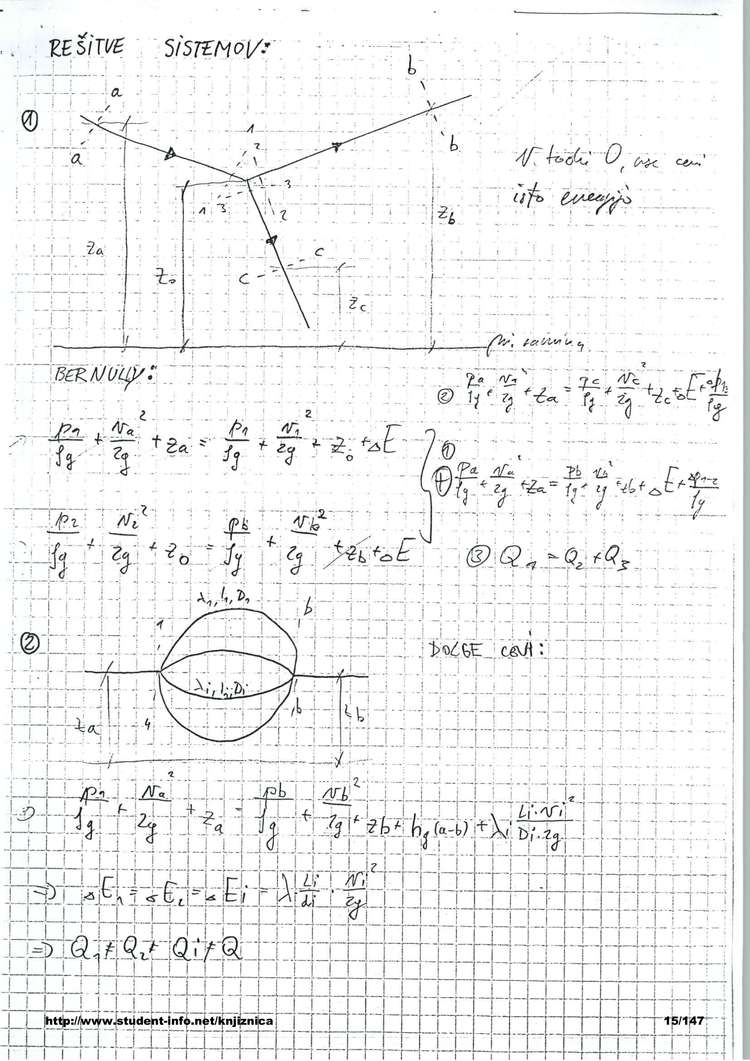 REŠITVE SISTEMOV:
①
a
a
b
b
1 2 3
1 3 2
c c
za
z₀
zc
zb
V točki O, vse cevi
isto energijo
BERNULLY:
pa/ρg + va²/2g + za = p1/ρg + v1²/2g + z₀ + ΔE
p2/ρg + v2²/2g + z₀ = pb/ρg + vb²/2g + zb + ΔE
② pa/ρg + va²/2g + za = pc/ρg + vc²/2g + zc + ΔE +
①
pa/ρg + va²/2g + za = pb/ρg + vb²/2g + zb + ΔE + Δp1-2/ρg
③ Q₁ = Q₂ + Q₃
②
λ₁, l₁, D₁
1
b
λi, li, Di
4
b
za
zb
DOLGE CEVI:
⇒ pa/ρg + va²/2g + za = pb/ρg + vb²/2g + zb + hg(a-b) + λi Li·vi²/Di·2g
⇒ ΔE₁ = ΔE₂ = ΔEi = λ · Li/di · vi²/2g
⇒ Q₁ ≠ Q₂ ≠ Qi ≠ Q
http://www.student-info.net/knjiznica
15/147